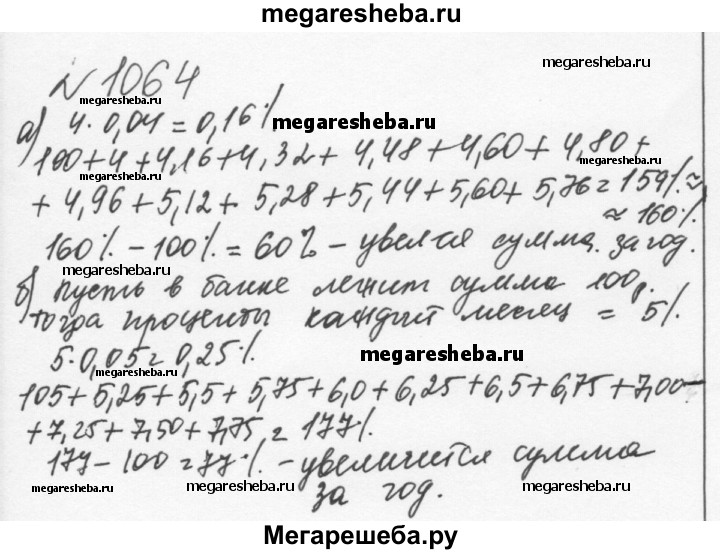 megaresheba.ru
№ 1064
megaresheba.ru
megaresheba.ru
а) 4 · 0,04 = 0,16 %
megaresheba.ru
100 + 4 + 4,16 + 4,32 + 4,48 + 4,60 + 4,80 +
megaresheba.ru
megaresheba.ru
+ 4,96 + 5,12 + 5,28 + 5,44 + 5,60 + 5,76 = 159 % ≈
≈ 160 %
160 % - 100 % = 60 % - увел-ся сумма за год.
megaresheba.ru
megaresheba.ru
б) пусть в банке лежит сумма 100 р.
тогда проценты каждый месяц = 5 %
megaresheba.ru
5 · 0,05 = 0,25 %
megaresheba.ru
105 + 5,25 + 5,5 + 5,75 + 6,0 + 6,25 + 6,5 + 6,75 + 7,00 +
+ 7,25 + 7,50 + 7,75 = 177 %
megaresheba.ru
177 - 100 = 77 % - увеличится сумма
за год.
megaresheba.ru
megaresheba.ru
megaresheba.ru
Мегарешеба.ру